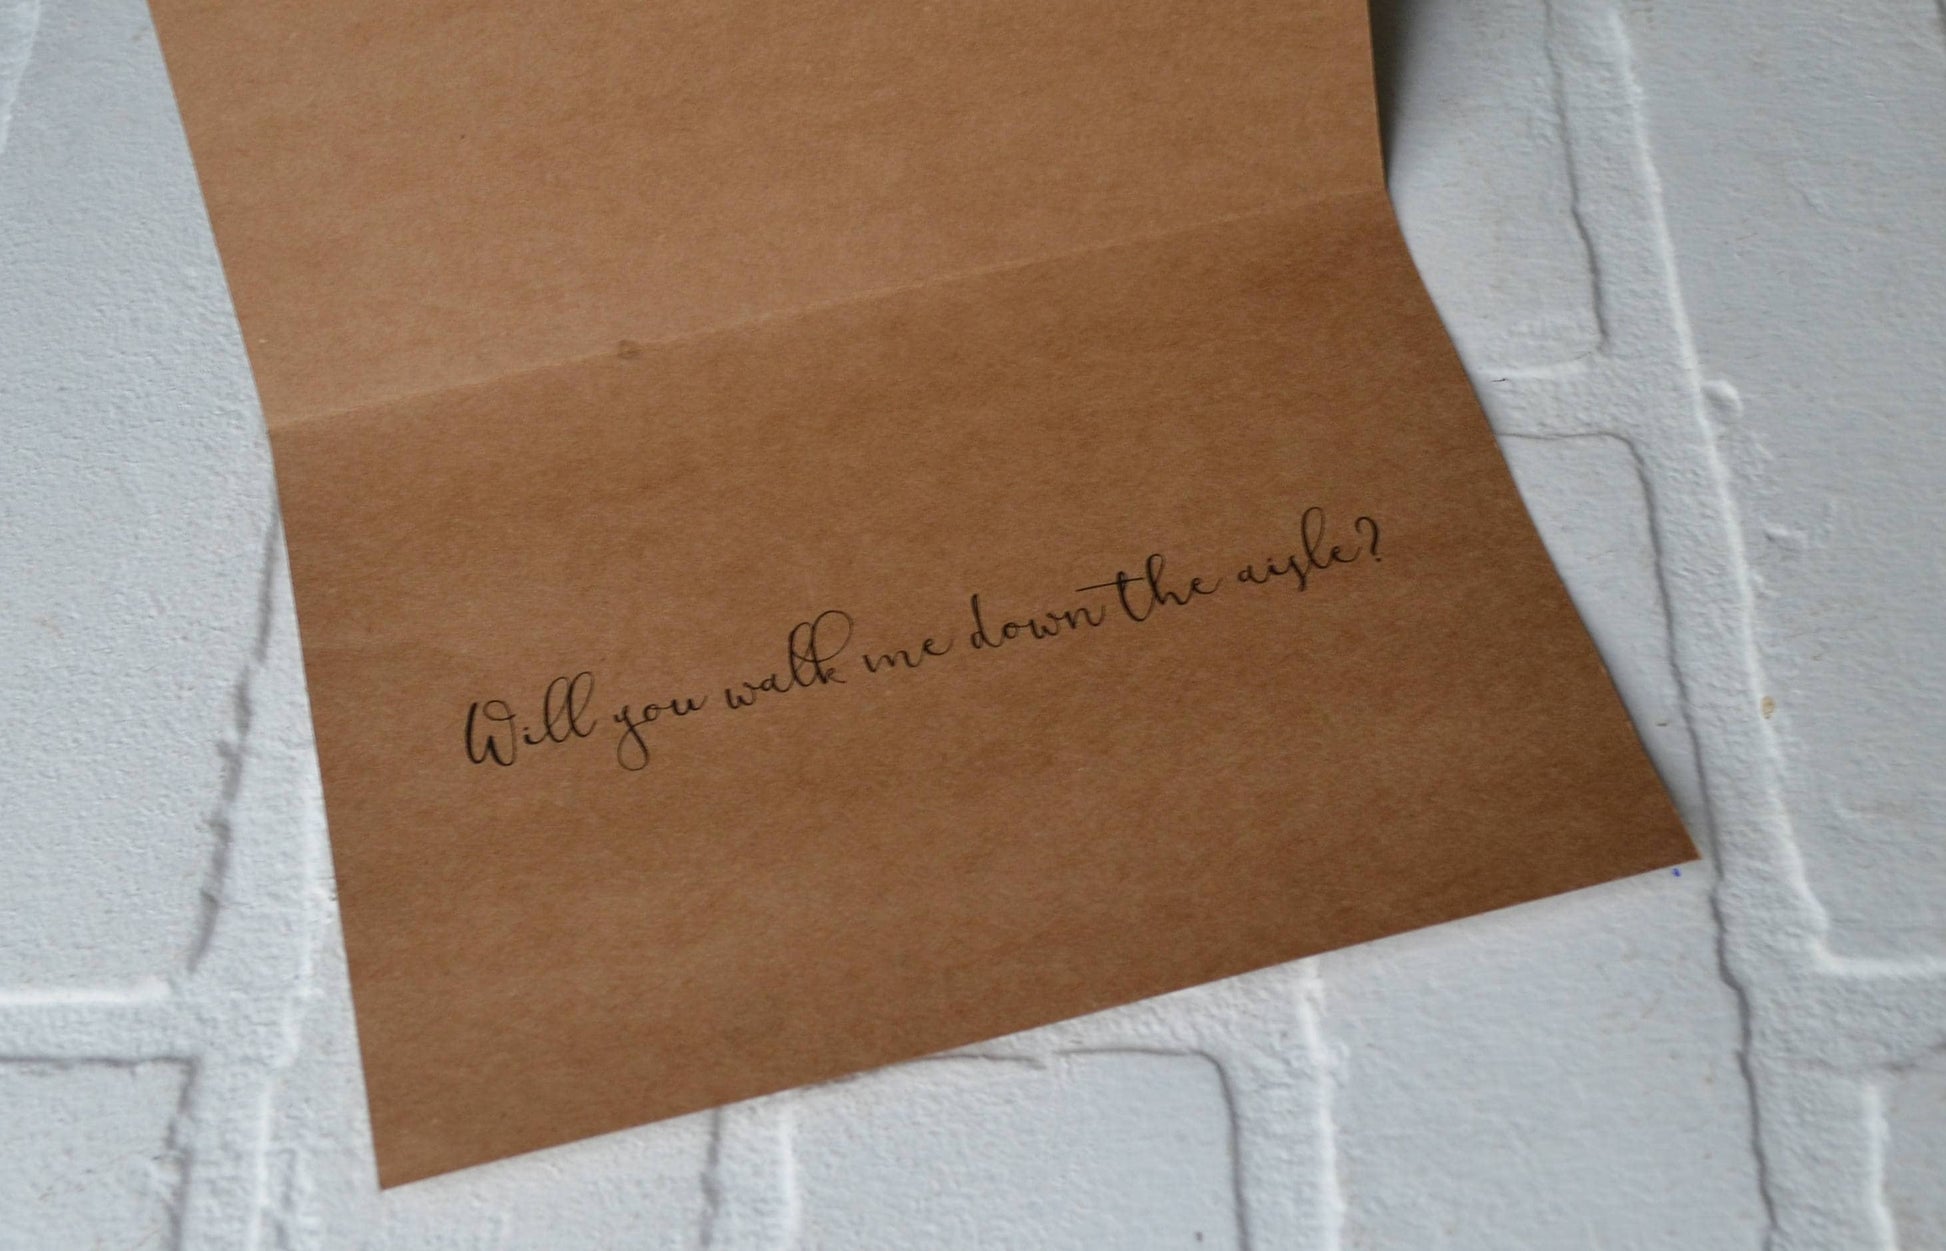 Will you walk me down the aisle?